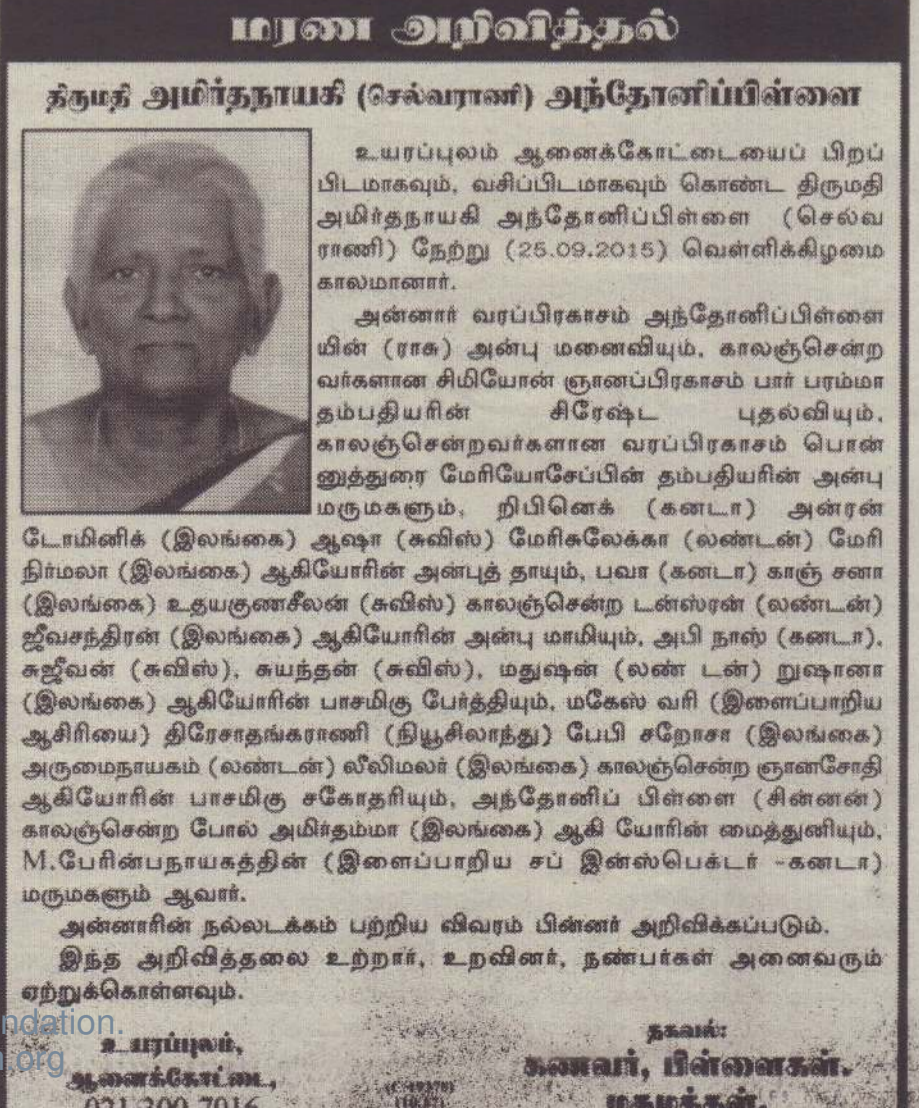 மரண அறிவித்தல்
திருமதி அமிர்தநாயகி (செல்வராணி) அந்தோனிப்பிள்ளை
உயரப்புலம் ஆனைக்கோட்டையைப் பிறப்
பிடமாகவும், வசிப்பிடமாகவும் கொண்ட திருமதி
அமிர்தநாயகி அந்தோனிப்பிள்ளை (செல்வ
ராணி) நேற்று (25.09.2015) வெள்ளிக்கிழமை
காலமானார்.
அன்னார் வரப்பிரகாசம் அந்தோனிப்பிள்ளை
யின் (ராசு) அன்பு மனைவியும், காலஞ்சென்ற
வர்களான சிமியோன் ஞானப்பிரகாசம் பார் பரம்மா
தம்பதியரின் சிரேஷ்ட புதல்வியும்,
காலஞ்சென்றவர்களான வரப்பிரகாசம் பொன்
னுத்துரை மேரியோசேப்பின் தம்பதியரின் அன்பு
மருமகளும், றிபினெக் (கனடா) அன்ரன்
டோமினிக் (இலங்கை) ஆஷா (சுவிஸ்) மேரிசுலேக்கா (லண்டன்) மேரி
நிர்மலா (இலங்கை) ஆகியோரின் அன்புத் தாயும், பவா (கனடா) காஞ் சனா
(இலங்கை) உதயகுணசீலன் (சுவிஸ்) காலஞ்சென்ற டன்ஸ்ரன் (லண்டன்)
ஜீவசந்திரன் (இலங்கை) ஆகியோரின் அன்பு மாமியும், அபி நாஸ் (கனடா),
சுஜீவன் (சுவிஸ்), சுயந்தன் (சுவிஸ்), மதுஷன் (லண் டன்) றுஷானா
(இலங்கை) ஆகியோரின் பாசமிகு பேர்த்தியும், மகேஸ் வரி (இளைப்பாறிய
ஆசிரியை) திரேசாதங்கராணி (நியூசிலாந்து) பேபி சறோசா (இலங்கை)
அருமைநாயகம் (லண்டன்) லீலிமலர் (இலங்கை) காலஞ்சென்ற ஞானசோதி
ஆகியோரின் பாசமிகு சகோதரியும், அந்தோனிப் பிள்ளை (சின்னன்)
காலஞ்சென்ற போல் அமிர்தம்மா (இலங்கை) ஆகி யோரின் மைத்துனியும்,
M.பேரின்பநாயகத்தின் (இளைப்பாறிய சப் இன்ஸ்பெக்டர் -கனடா)
மருமகளும் ஆவார்.
அன்னாரின் நல்லடக்கம் பற்றிய விவரம் பின்னர் அறிவிக்கப்படும்.
இந்த அறிவித்தலை உற்றார், உறவினர், நண்பர்கள் அனைவரும்
ஏற்றுக்கொள்ளவும்.
ndation.
n.org
உயரப்புலம்,
ஆனைக்கோட்டை,
021 300 7016
தகவல்:
கணவர், பிள்ளைகள்,
மருமக்கள்.